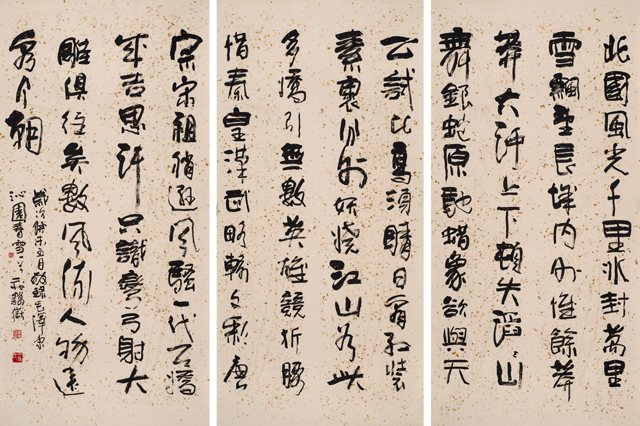 北國風光千里冰封萬里
雪飄望長城內外惟餘莽
莽大河上下頓失滔滔山
舞銀蛇原馳蜡象欲與天
公試比高須晴日看紅裝
素裹分外妖嬈江山如此
多嬌引無數英雄競折腰
惜秦皇漢武略輸文彩唐
宗宋祖稍遜風騷一代天驕
成吉思汗只識彎弓射大
雕俱往矣數風流人物還
看今朝
歲次未五月敬錄毛澤東
沁園春雪